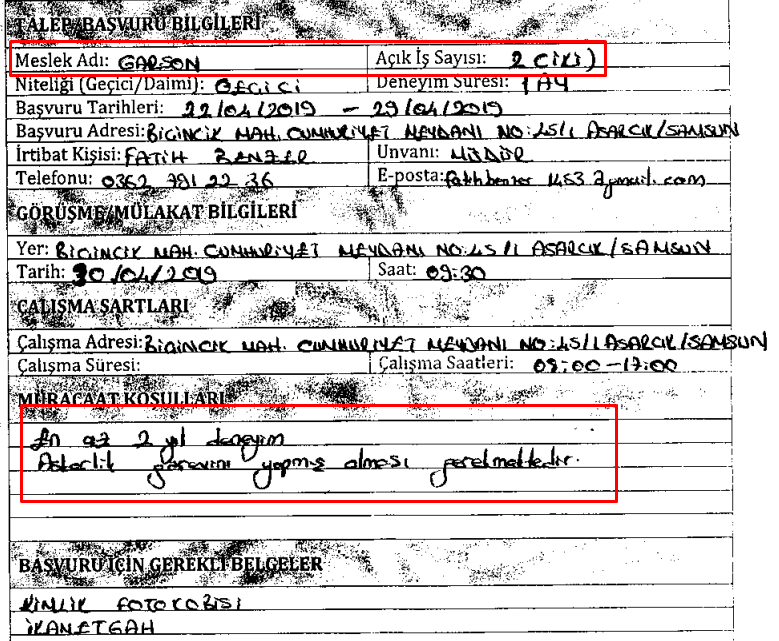 TALEP/BAŞVURU BİLGİLERİ
Meslek Adı: GARSON Açık İş Sayısı: 2 (İKİ)
Niteliği (Geçici/Daimi): GEÇİCİ Deneyim Süresi: 1 AY
Başvuru Tarihleri: 22/04/2019 - 29/04/2019
Başvuru Adresi: BİÇİNCİK MAH. CUMHURİYET MEYDANI NO:45/1 ASARCIK/SAMSUN
İrtibat Kişisi: FATİH BENZER Unvanı: MÜDÜR
Telefonu: 0362 791 22 36 E-posta:
GÖRÜŞME/MÜLAKAT BİLGİLERİ
Yer: BİÇİNCİK MAH. CUMHURİYET MEYDANI NO:45/1 ASARCIK/SAMSUN
Tarih: 30/04/2019 Saat: 09:30
ÇALIŞMA ŞARTLARI
Çalışma Adresi: BİÇİNCİK MAH. CUMHURİYET MEYDANI NO:45/1 ASARCIK/SAMSUN
Çalışma Süresi: Çalışma Saatleri: 09:00-17:00
MÜRACAAT KOŞULLARI
En az 2 yıl deneyim
Askerlik görevini yapmış olması gerekmektedir.
BAŞVURU İÇİN GEREKLİ BELGELER
KİMLİK FOTOKOBİSİ
İKANETGAH